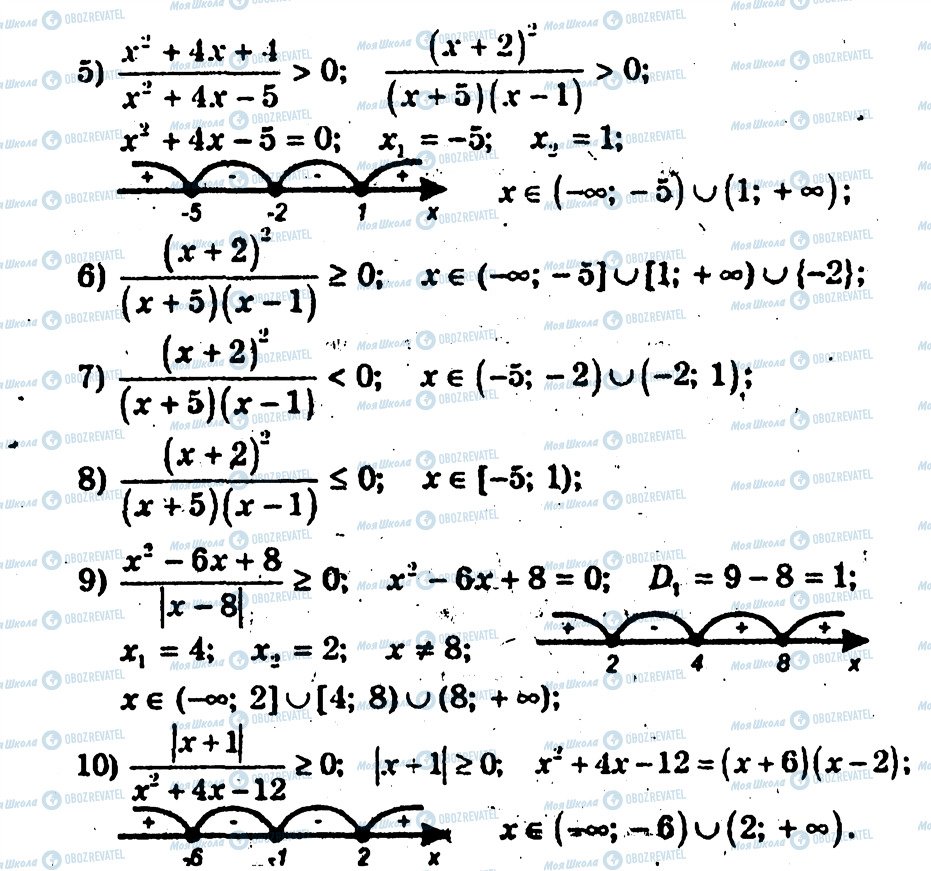 5) (x² + 4x + 4)/(x² + 4x − 5) > 0; (x + 2)²/((x + 5)(x − 1)) > 0;
x² + 4x − 5 = 0; x₁ = −5; x₂ = 1;
+ - - +
-5 -2 1 x
x ∈ (−∞; − 5) ∪ (1; + ∞);
6) (x + 2)²/((x + 5)(x − 1)) ≥ 0; x ∈ (−∞; − 5] ∪ [1; + ∞) ∪ {−2};
7) (x + 2)²/((x + 5)(x − 1)) < 0; x ∈ (−5; − 2) ∪ (−2; 1);
8) (x + 2)²/((x + 5)(x − 1)) ≤ 0; x ∈ [−5; 1);
9) (x² − 6x + 8)/|x − 8| ≥ 0; x² − 6x + 8 = 0; D₁ = 9 − 8 = 1;
x₁ = 4; x₂ = 2; x ≠ 8;
+ - + +
2 4 8 x
x ∈ (−∞; 2] ∪ [4; 8) ∪ (8; + ∞);
10) |x + 1|/(x² + 4x − 12) ≥ 0; |x + 1| ≥ 0; x² + 4x − 12 = (x + 6)(x − 2);
+ - - +
-6 -1 2 x
x ∈ (−∞; − 6) ∪ (2; + ∞).
Моя Школа OBOZREVATEL